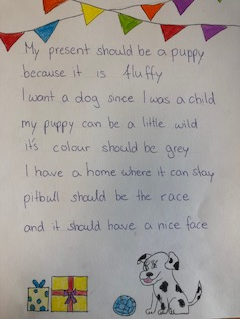 My present should be a puppy
because it is fluffy
I want a dog since I was a child
my puppy can be a little wild
it's colour should be grey
I have a home where it can stay
pitbull should be the race
and it should have a nice face